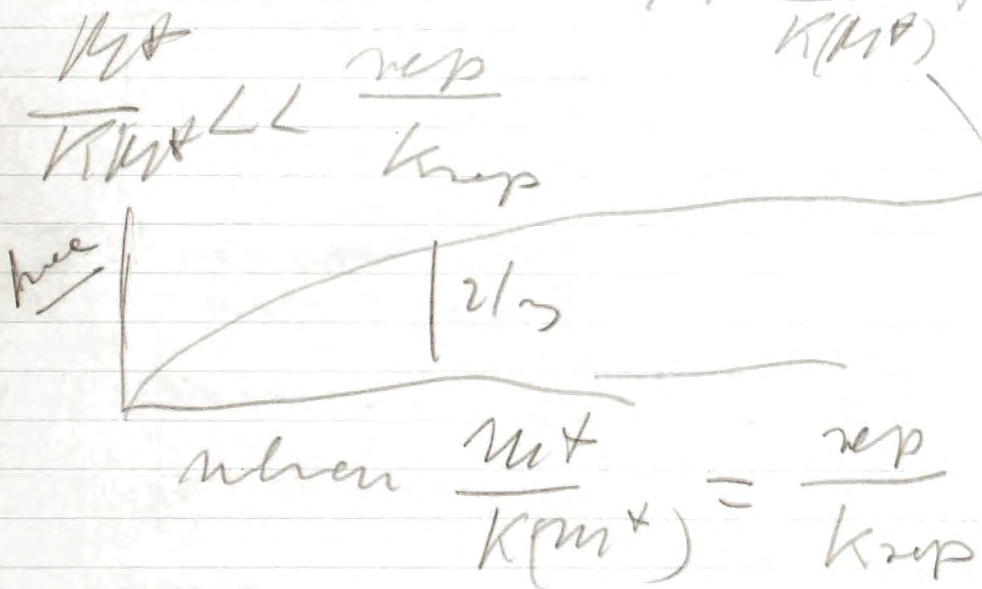 K(M*)
M* / K M* << rep / Krep
2/3
when M* / K(M*) = rep / Krep